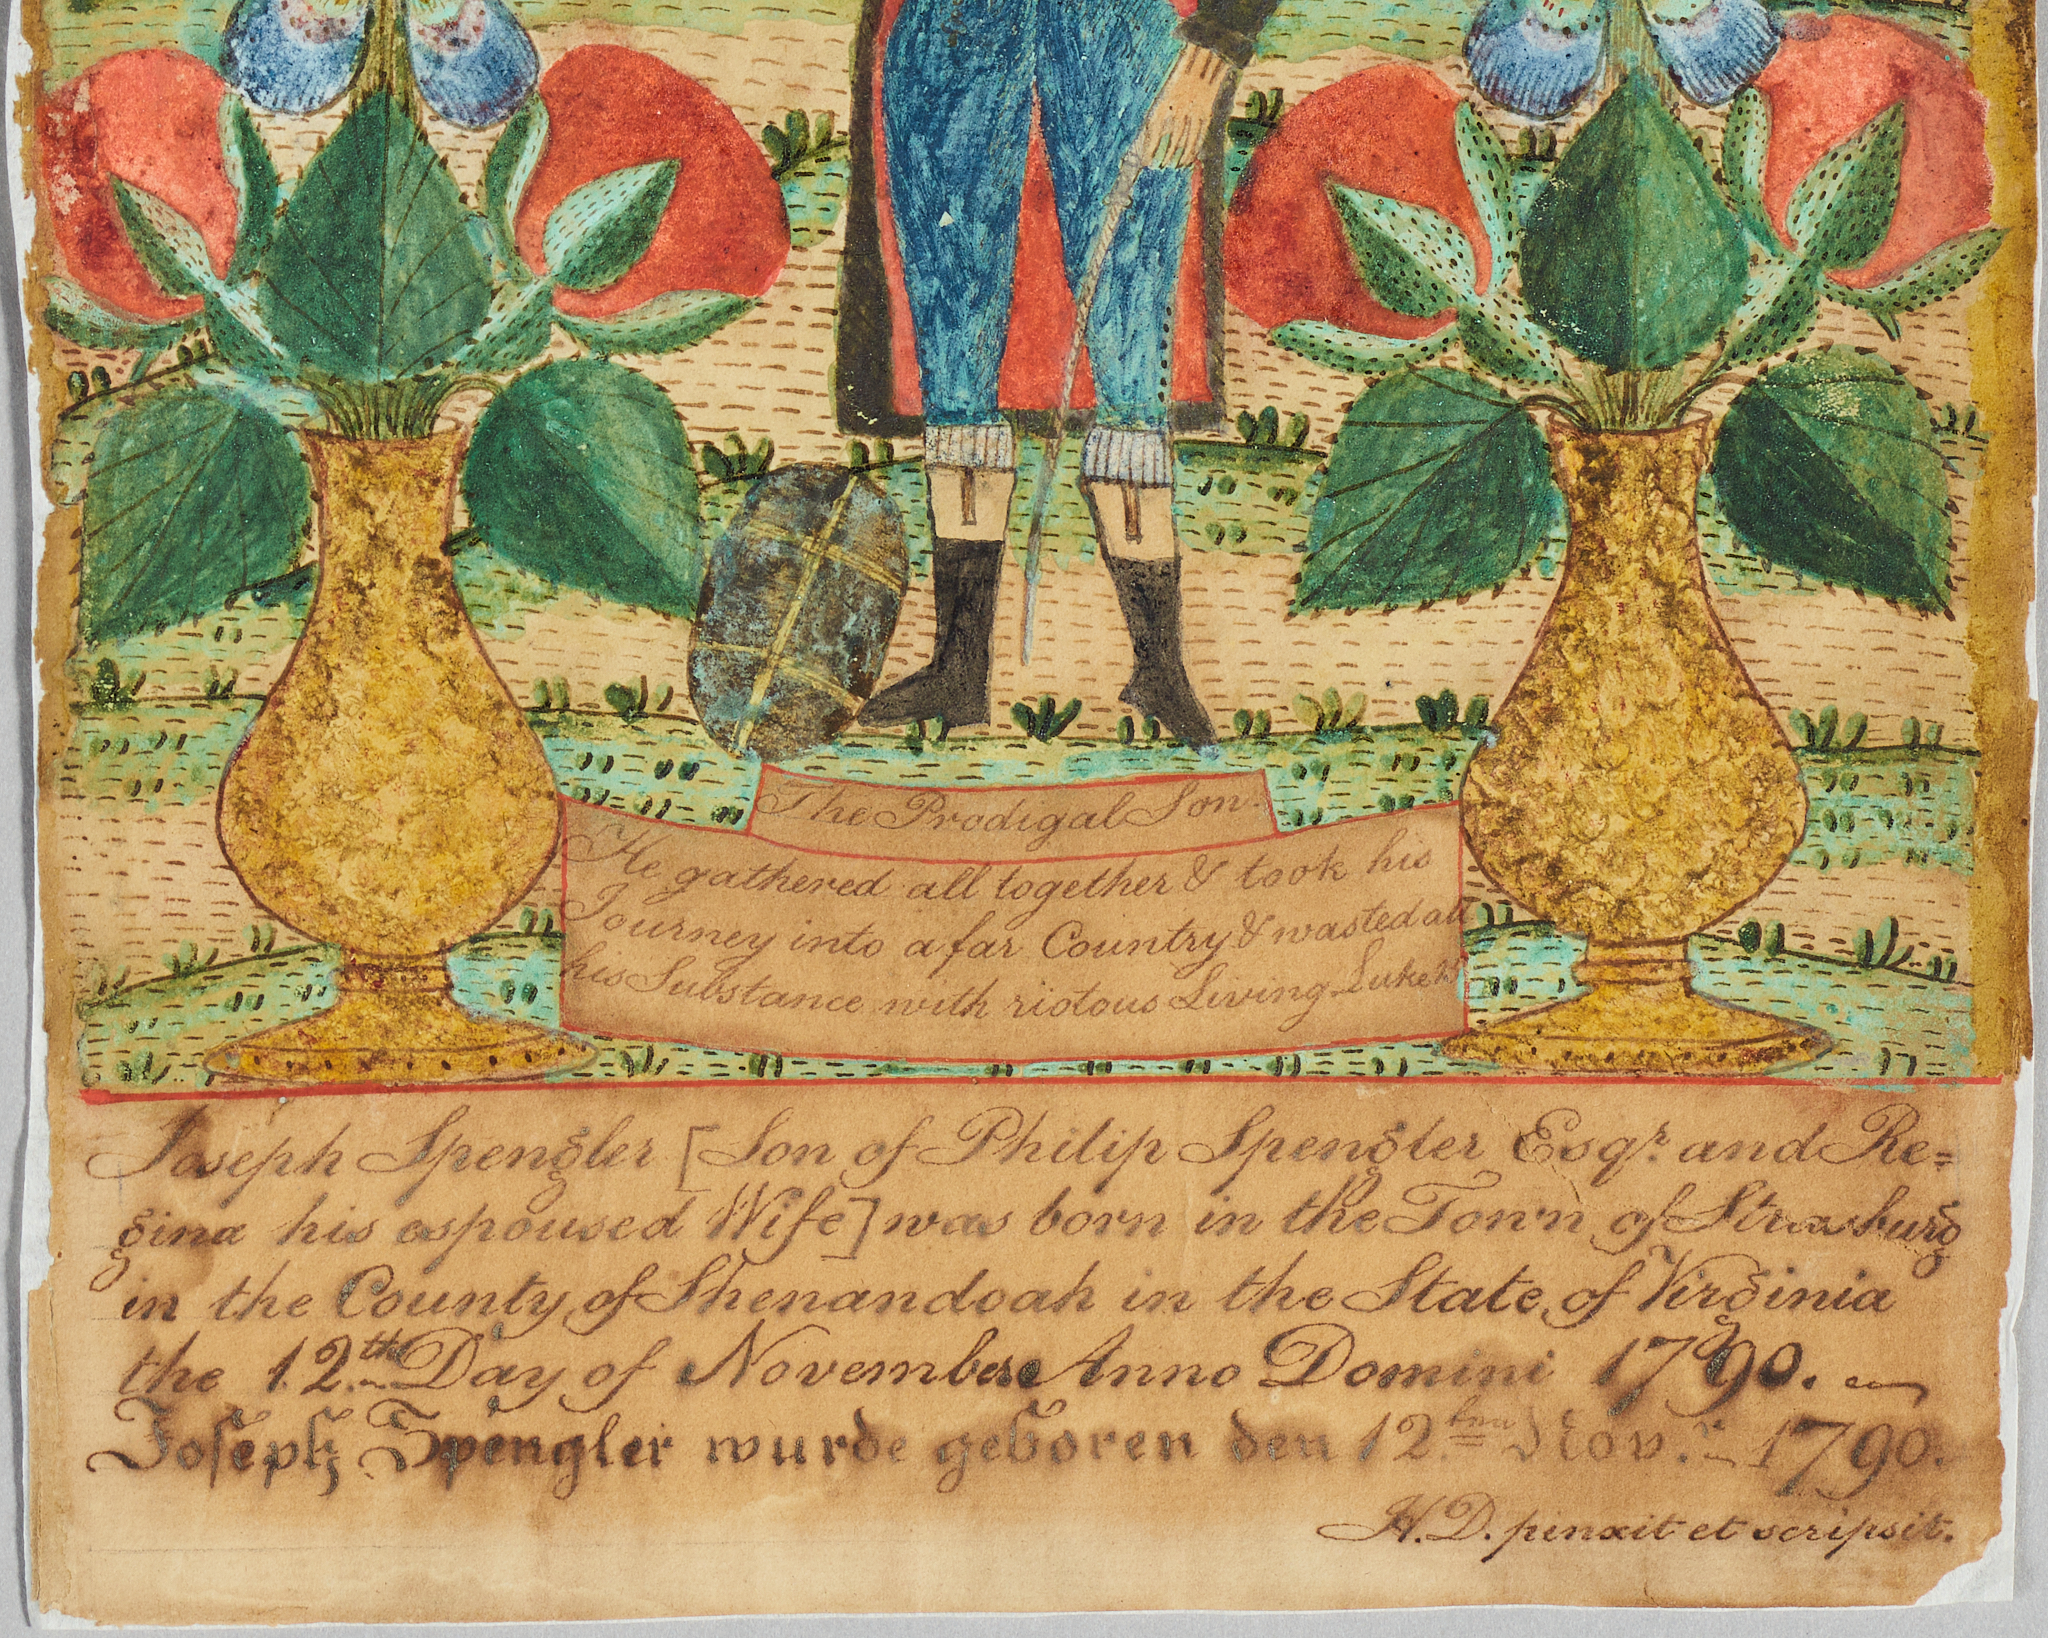 The Prodigal Son.
He gathered all together & took his
Journey into a far Country & wasted all
his Substance with riotous Living Luke
Joseph Spengler [Son of Philip Spengler Esqr. and Re=
gina his espoused Wife] was born in the Town of Strasburg
in the County of Shenandoah in the State of Virginia
the 12th Day of November Anno Domini 1790.
Joseph Spengler wurde geboren den 12ten Novr. 1790.
H.D. pinxit et scripsit.